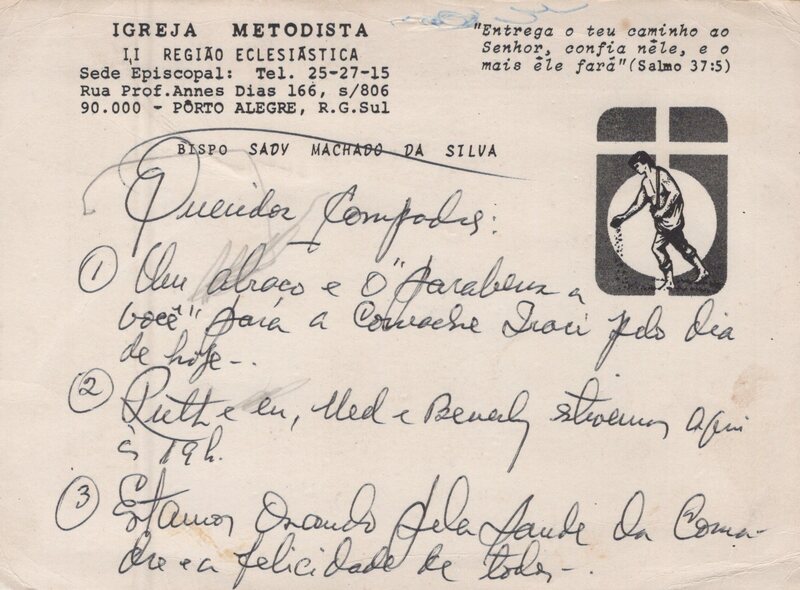 IGREJA METODISTA
II REGIÃO ECLESIÁSTICA
Sede Episcopal: Tel. 25-27-15
Rua Prof.Annes Dias 166, s/806
90.000 - PÔRTO ALEGRE, R.G.Sul
"Entrega o teu caminho ao
Senhor, confia nêle, e o
mais êle fará"(Salmo 37:5)
BISPO SADY MACHADO DA SILVA
Queridos Compadres:
1 Um abraço e o "parabens a
você" pará a Comadre Iraci pelo dia
de hoje-.
2 Ruth e eu, Med e Beverly estivemos aqui
às 19h.
3 Estamos Orando pela saude da Coma-
dre e a felicidade de todos-.